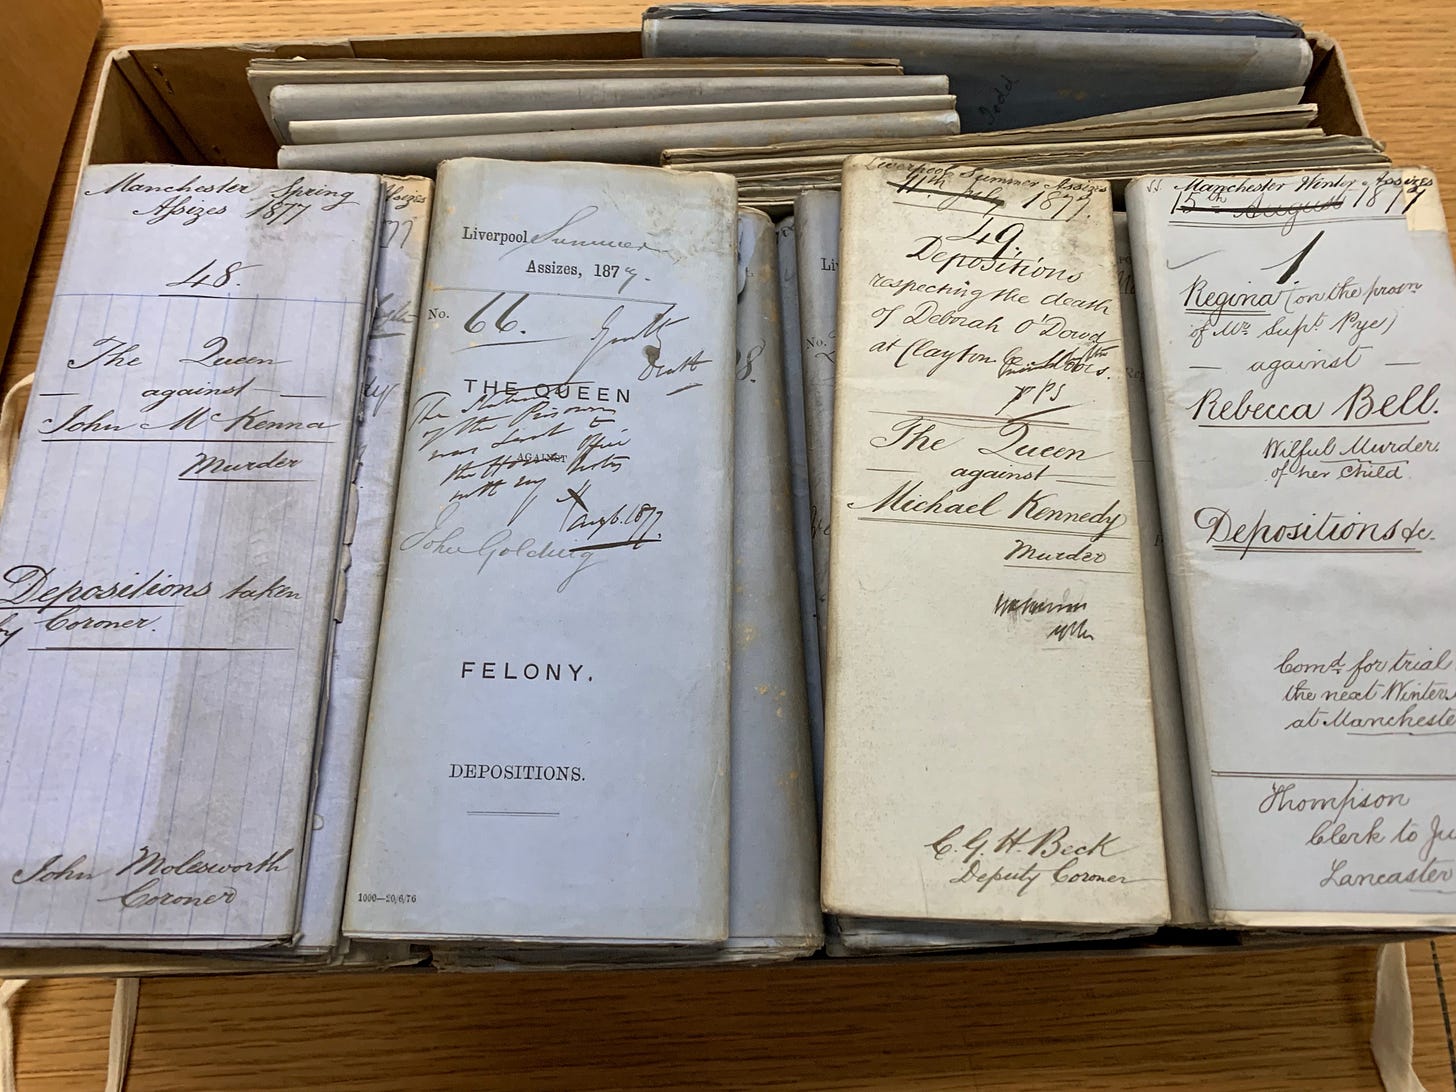 Manchester Spring
Assizes 1877
48.
The Queen
against
John McKenna
Murder
Depositions taken
by Coroner.
John Molesworth
Coroner
Assizes
77
Liverpool Summer
Assizes, 1877.
No. 66.
Guilty
Death
THE QUEEN
The
of the Prisoner
was sent to
the Home Office
with my notes
AGAINST
Aug 6. 1877.
John Golding
FELONY.
DEPOSITIONS.
1000—20/6/76
8.
Li
No.
Liverpool Summer Assizes
11th July 1877.
49.
Depositions
respecting the death
of Deborah O'Dowd
at Clayton
The Queen
against
Michael Kennedy
Murder
C. G. H. Beck
Deputy Coroner
Manchester Winter Assizes
15th August 1877
1
Regina (on the prosn
of Mr. Supt Pye)
against
Rebecca Bell.
Wilful Murder
of her Child.
Depositions &c.
Comd for trial
the next Winter
at Manchester
Thompson
Clerk to Ju
Lancaster